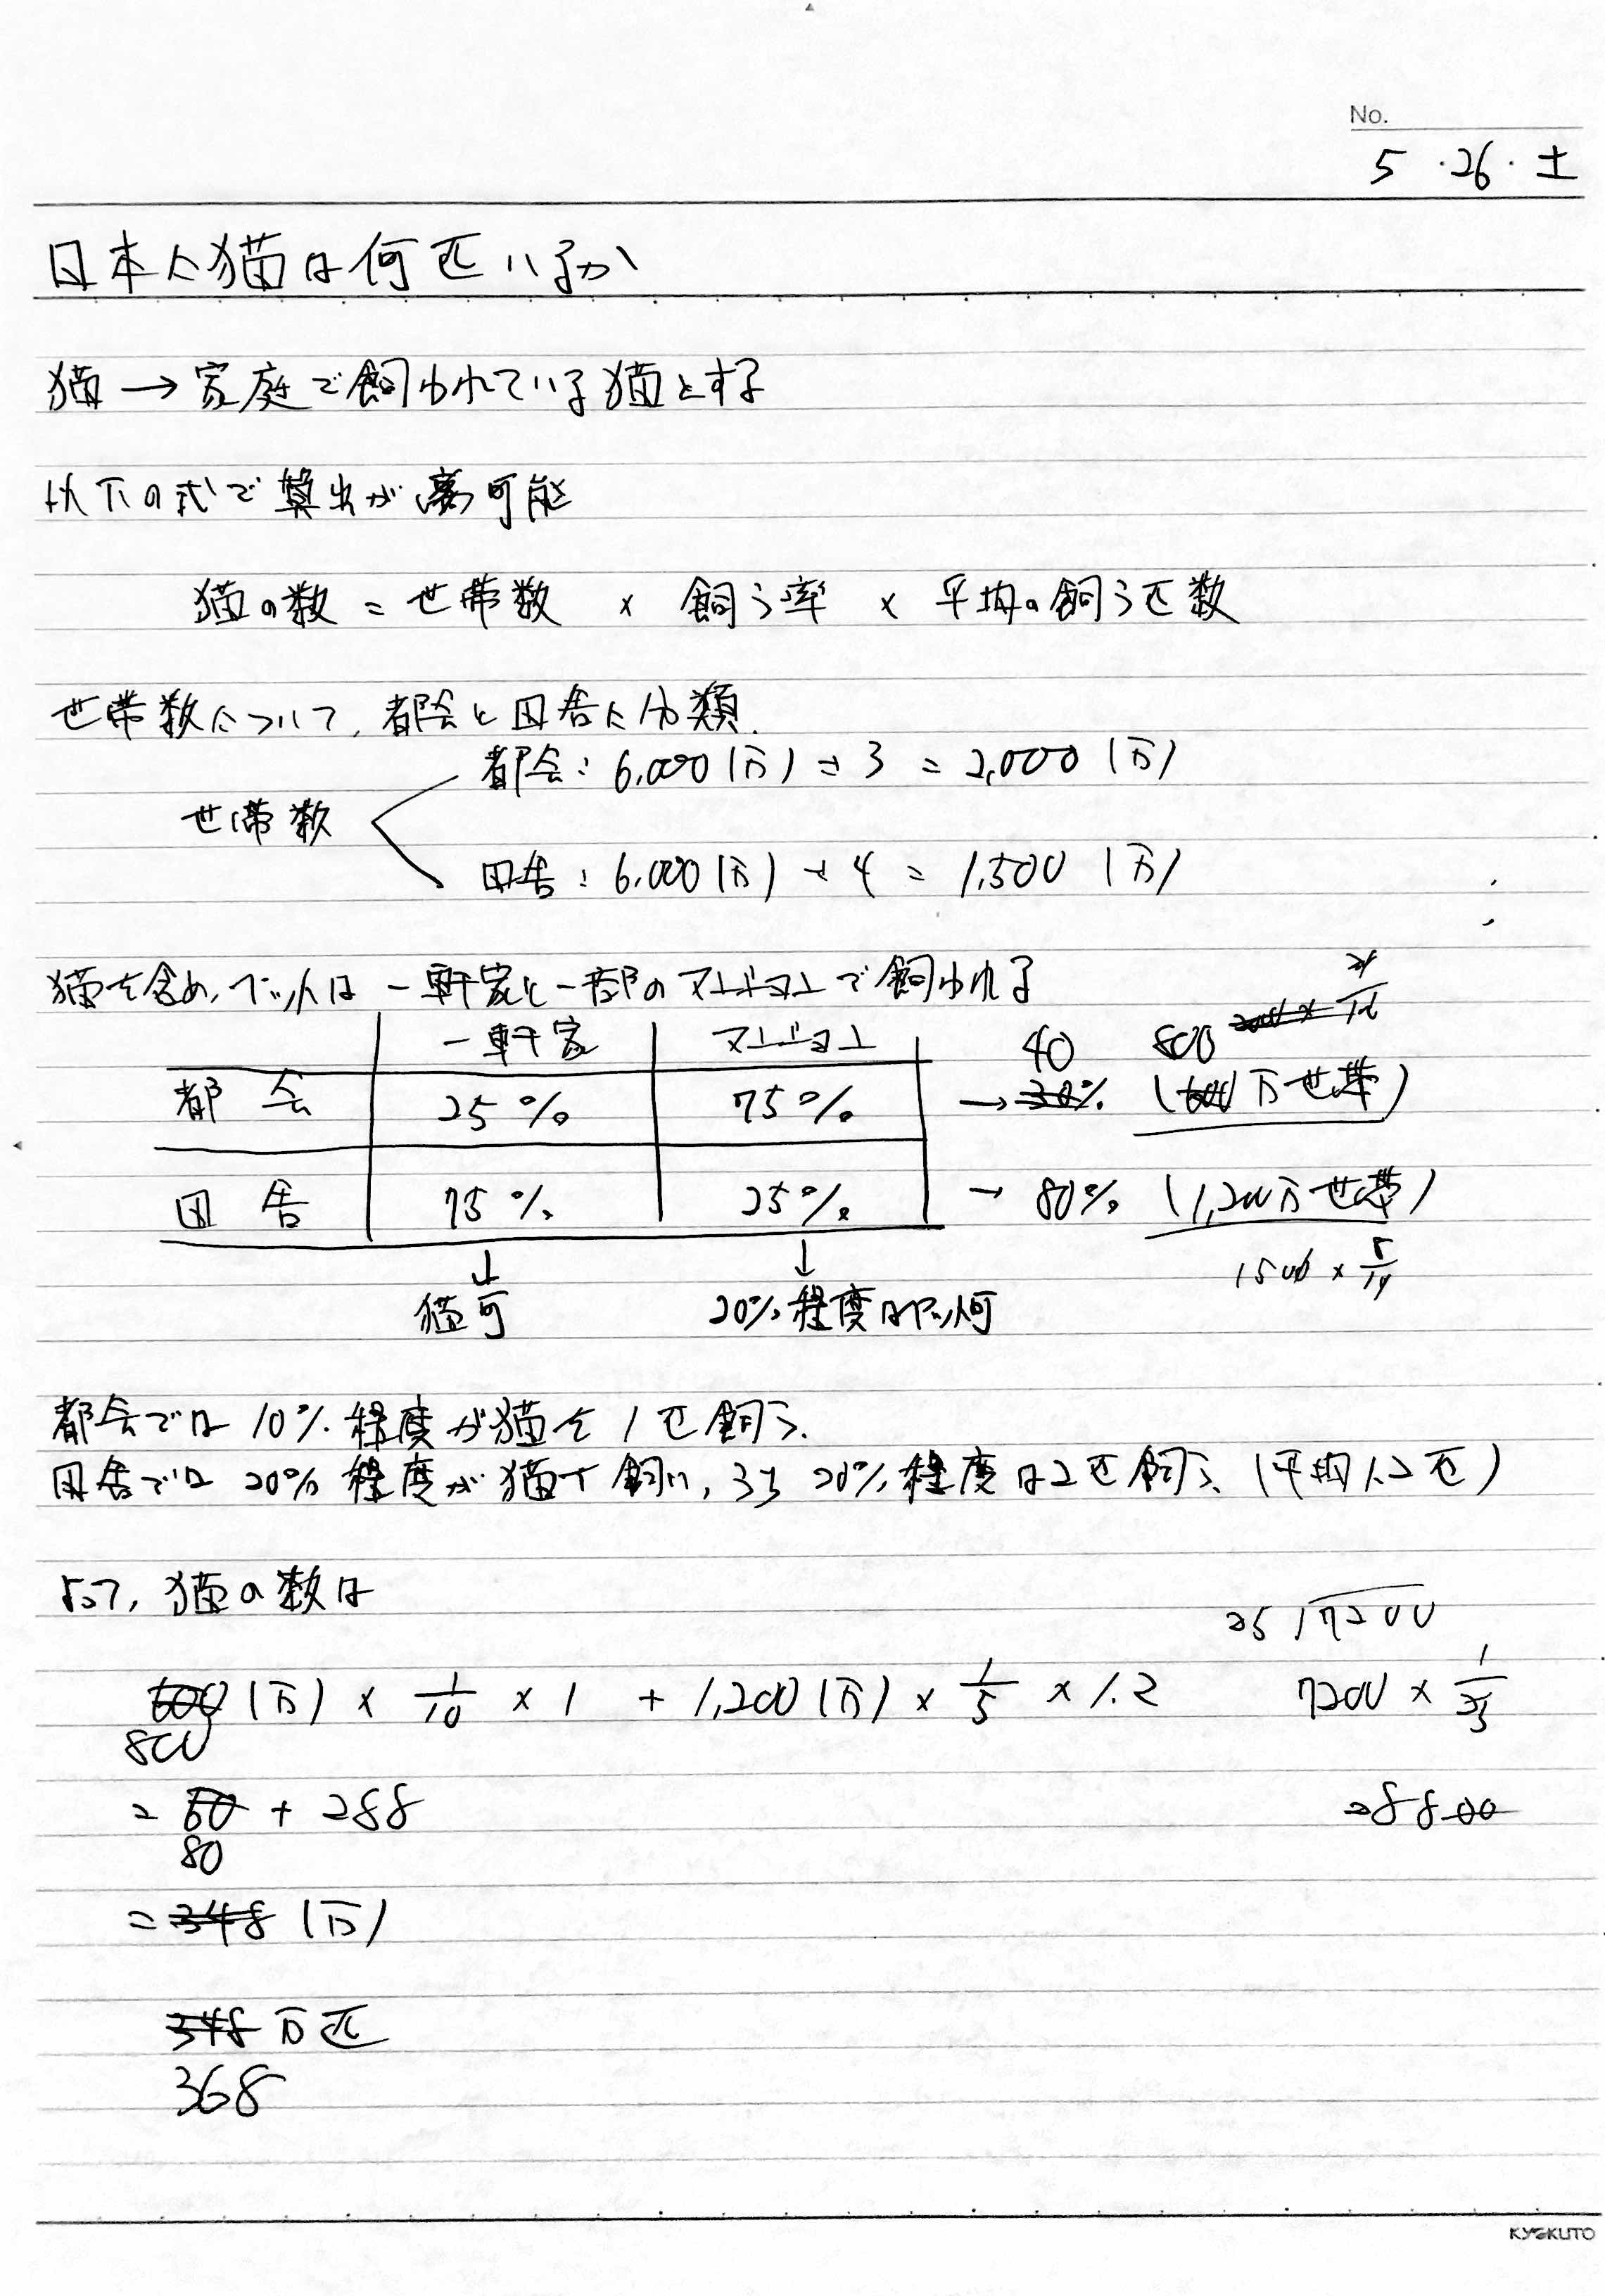 No.
5 ・26・土
日本に猫は何匹いるか
猫 → 家庭で飼われている猫とする
以下の式で算出が可能
猫の数 = 世帯数 × 飼う率 × 平均の飼う匹数
世帯数について, 都会と田舎に分類.
都会: 6,000(万) ÷ 3 = 2,000 (万)
世帯数
田舎: 6,000(万) ÷ 4 = 1,500 (万)
猫を含め、ペットは 一軒家と一部のマンションで飼われる
一軒家 マンション 40 800
都会 25% 75% → 30% (600万世帯)
田舎 75% 25% → 80% (1,200万世帯)
↓ ↓ 1500 × 8/10
猫可 20%程度はペット可
都会では 10%程度が猫を1匹飼う.
田舎では 20%程度が猫を飼い, うち 20%程度は2匹飼う. (平均1.2匹)
よって, 猫の数は
25 17200
600(万) × 1/10 × 1 + 1,200(万) × 1/5 × 1.2 7200 × 1/25
800
= 60 + 288 28800
80
= 348 (万)
348 万匹
368
KYOKUTO